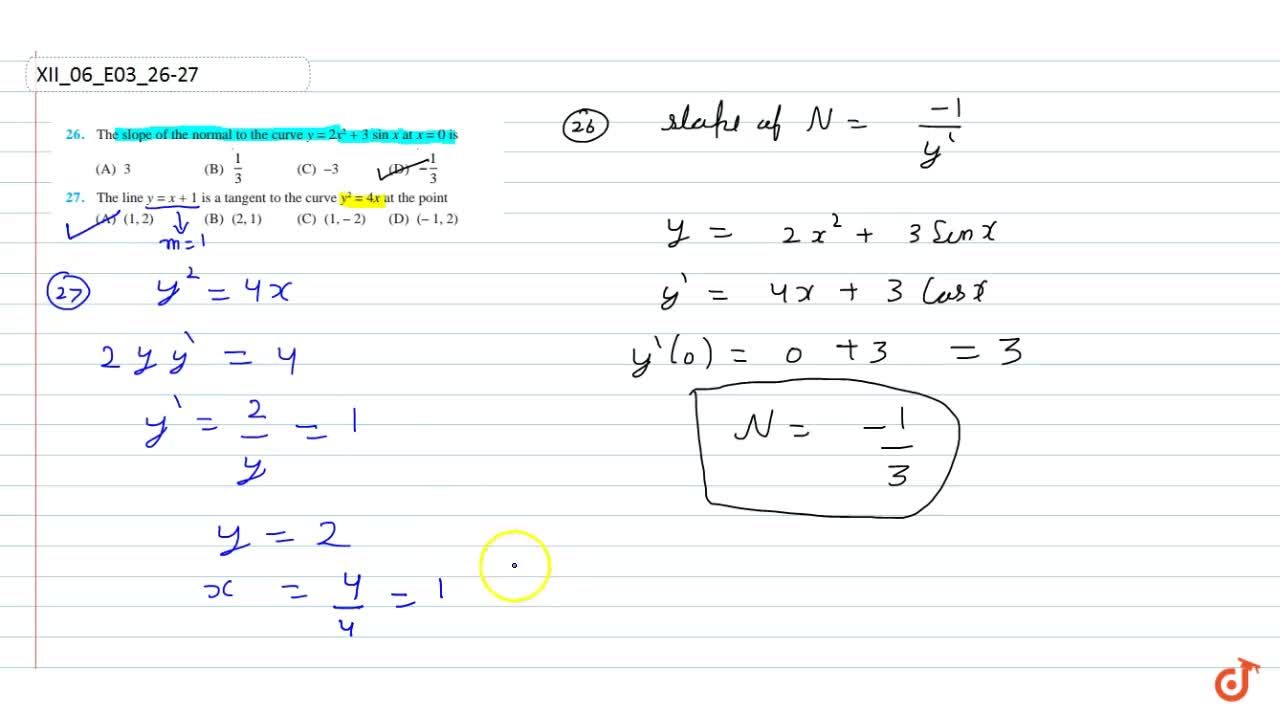 XII_06_E03_26-27
26. The slope of the normal to the curve y = 2x² + 3 sin x at x = 0 is
(A) 3 (B) 1/3 (C) –3 (D) –1/3
27. The line y = x + 1 is a tangent to the curve y² = 4x at the point
(A) (1, 2) (B) (2, 1) (C) (1, – 2) (D) (– 1, 2)
m=1
27 y² = 4x
2 y y' = 4
y' = 2/y = 1
y = 2
x = 4/4 = 1
26 slope of N = -1/y'
y = 2x² + 3 Sin x
y' = 4x + 3 Cos x
y'(0) = 0 + 3 = 3
N = -1/3